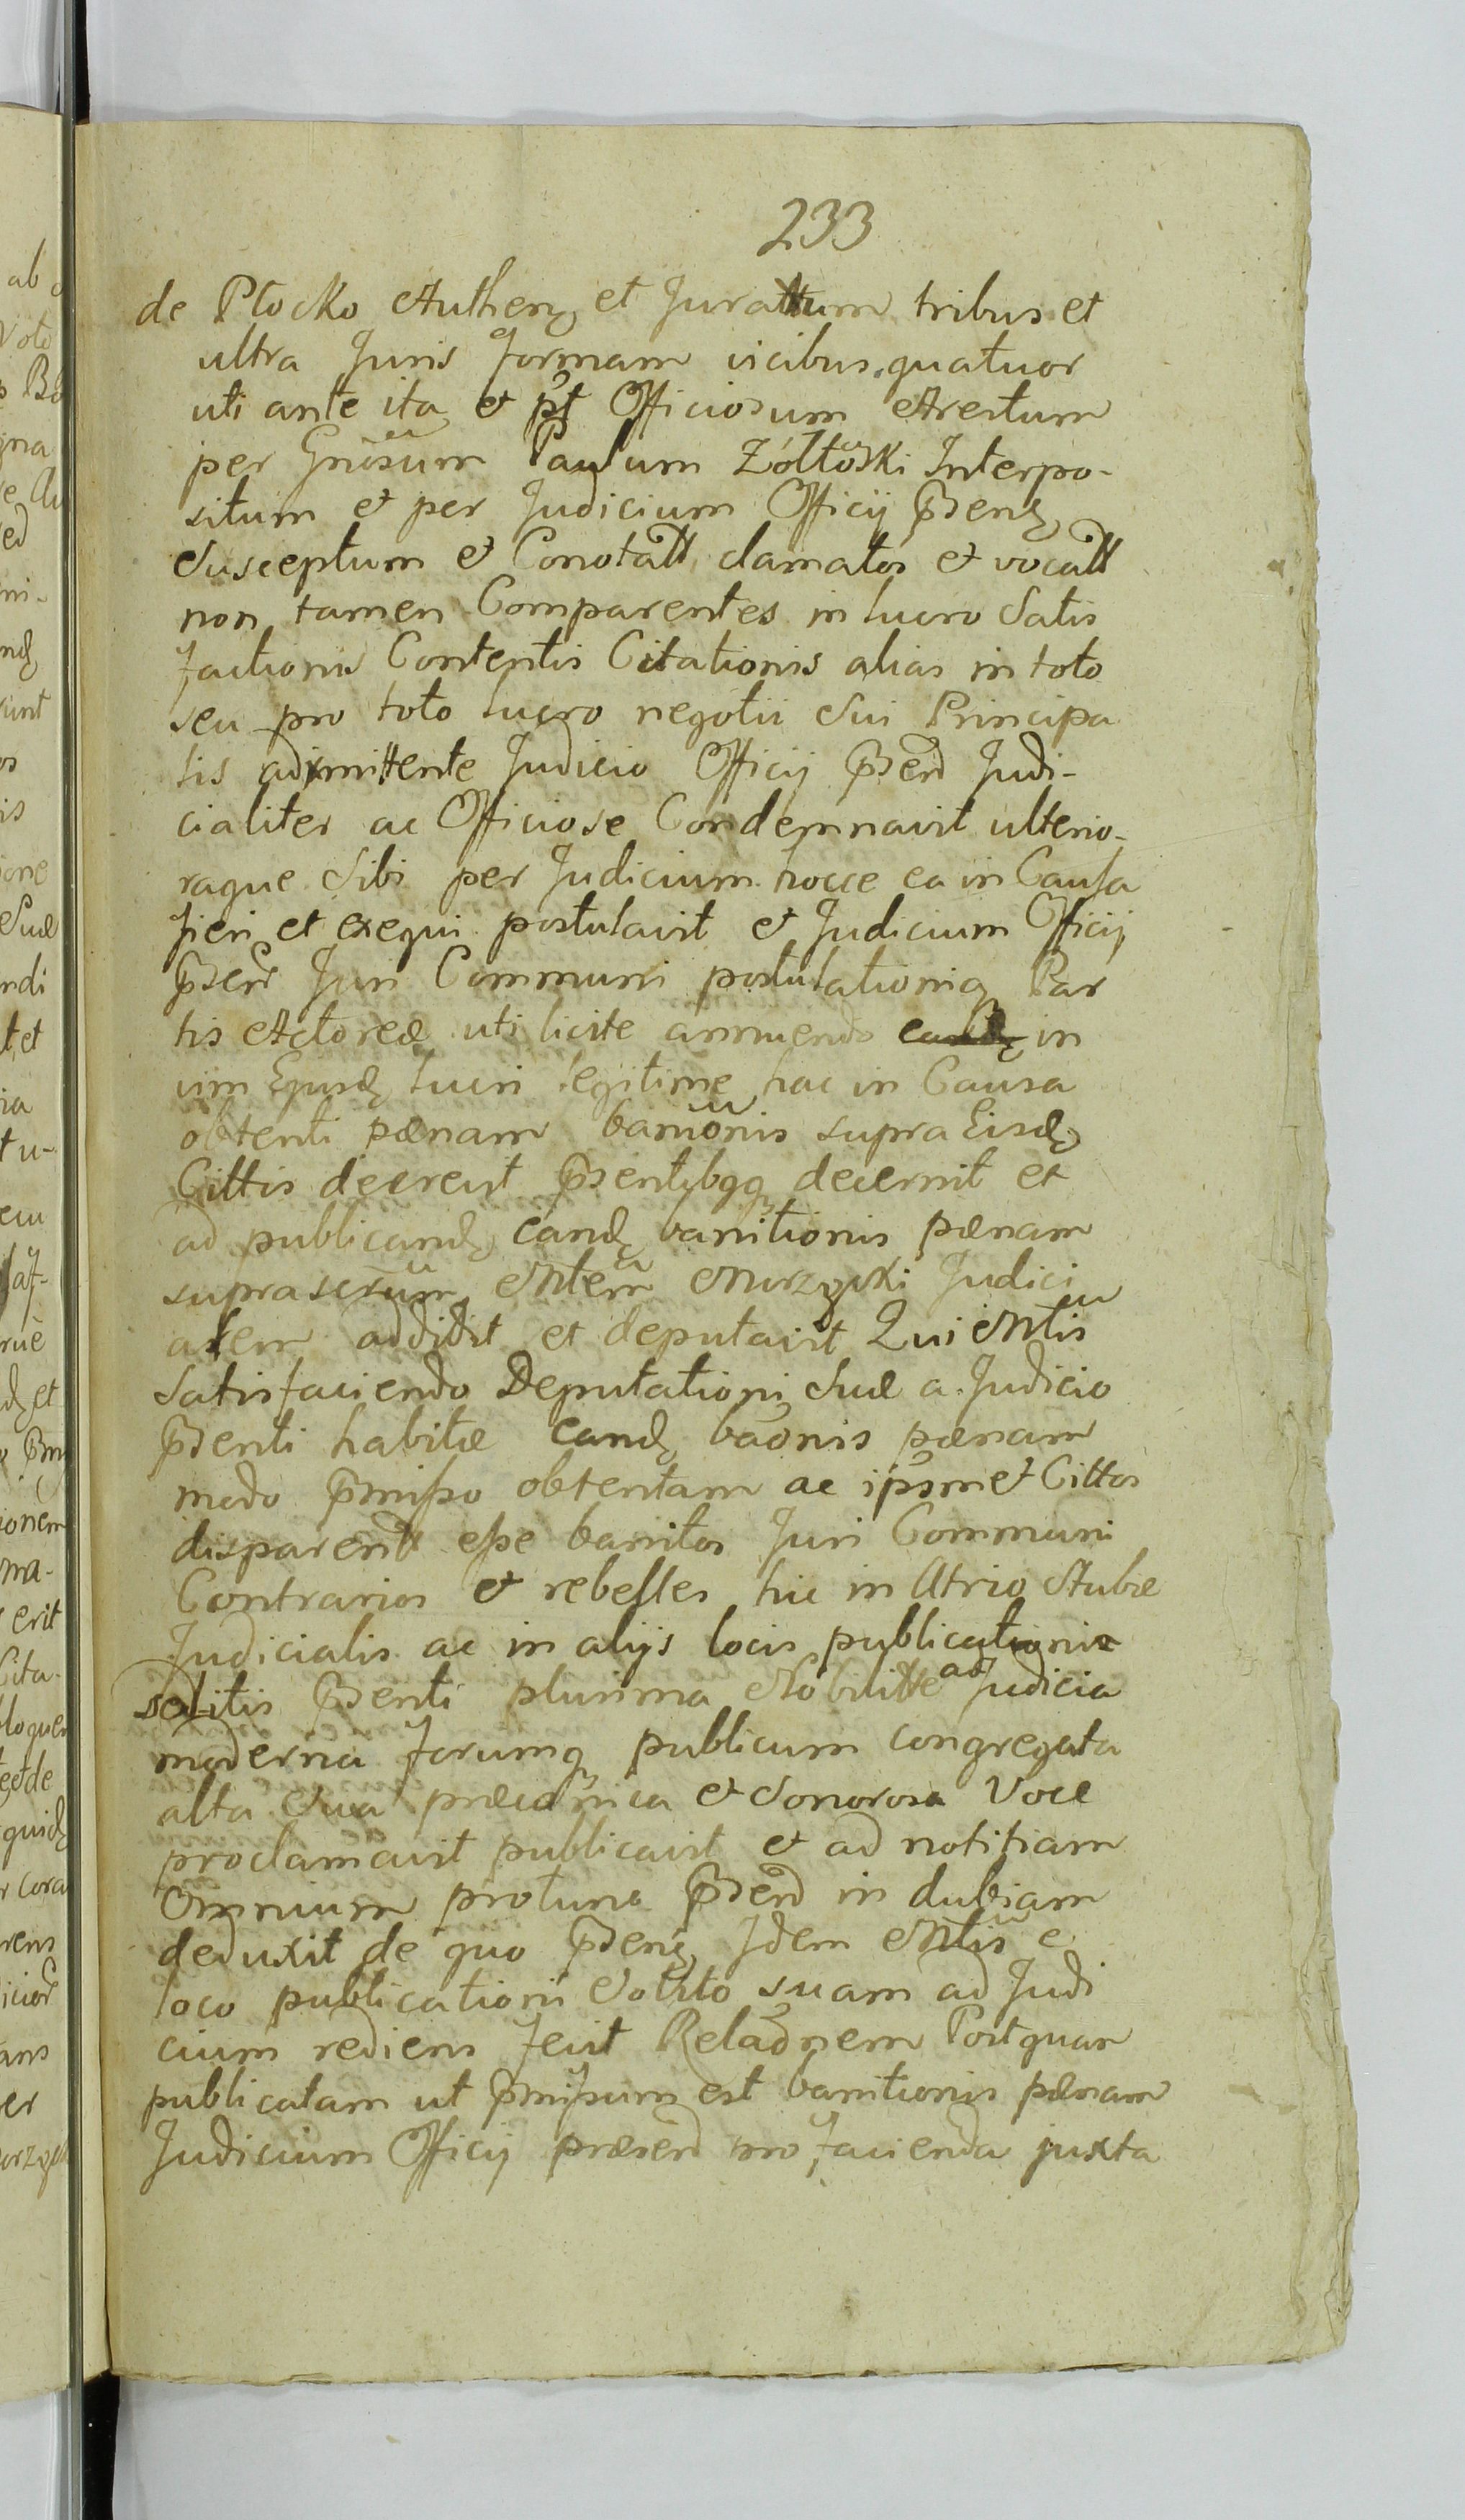 233
de Płocko Authen et Jurattum tribus et
ultra Juris formam vicibus quatuor
uti ante ita & pt Officiosum Arestum
per Gnosum Paulum Zółtoski Interpo-
situm & per Judicium Officij Psens
Susceptum & Conotatt clamatos & vocatt
non tamen Comparentes in lucro Satis
factionis Contentis Citationis alias in toto
seu pro toto lucro negotii Sui Principa
lis admittente Judicio Officij Psen Judi-
cialiter ac Officiose Condemnavit ulterio-
raque Sibi per Judicium hocce ea in Causa
fieri et exequi postulavit & Judicium Officij
Psens Juri Communi postulationiq Par
tis Actoreæ uti licite annuendo in
vim Ejusd lucri legitime hac in Causa
obtenti pænam bannonis supra Eisd
Cittis decrevit Psentibqq decernit et
ad publicand eand banitionis pænam
suprascrum Mtem Murzynski Judici
alem addidit et deputavit Qui Mtlis
Satisfaciendo Deputationi Suæ a Judicio
Psenti habitæ eand baonis pænam
modo Pmisso obtentam ac ipsmet Cittos
disparentt esse banitos Juri Communi
Contrarios & rebelles hic in Atrio Stubæ
Judicialis ac in alijs locis publicationis
solitis Psenti plurima Nobilitte ad Judicia
moderna forumq publicum congregata
alta Sua præconica & Sonorosa Voce
proclamavit publicavit & ad notitiam
Omnium protunc Psen in dubiam
deduxit de quo Psens Idem Mtlis e
loco publicationi Solito suam ad Judi
cium rediens fecit Relaonem Postquam
publicatam ut Pmissum est banitionis pænam
Judicium Officij præsen pro facienda juxta